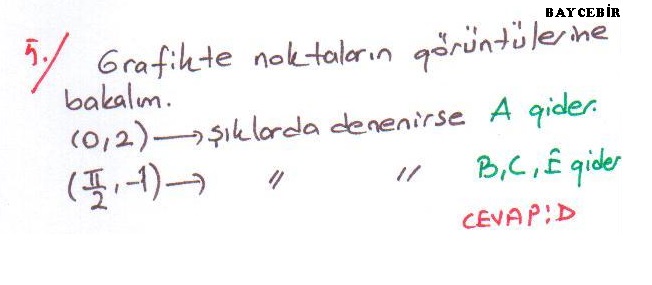 BAYCEBİR
5./ Grafikte noktaların görüntülerine
bakalım.
(0,2) → şıklarda denenirse A gider.
(π/2,-1) → " " B, C, E gider
CEVAP: D